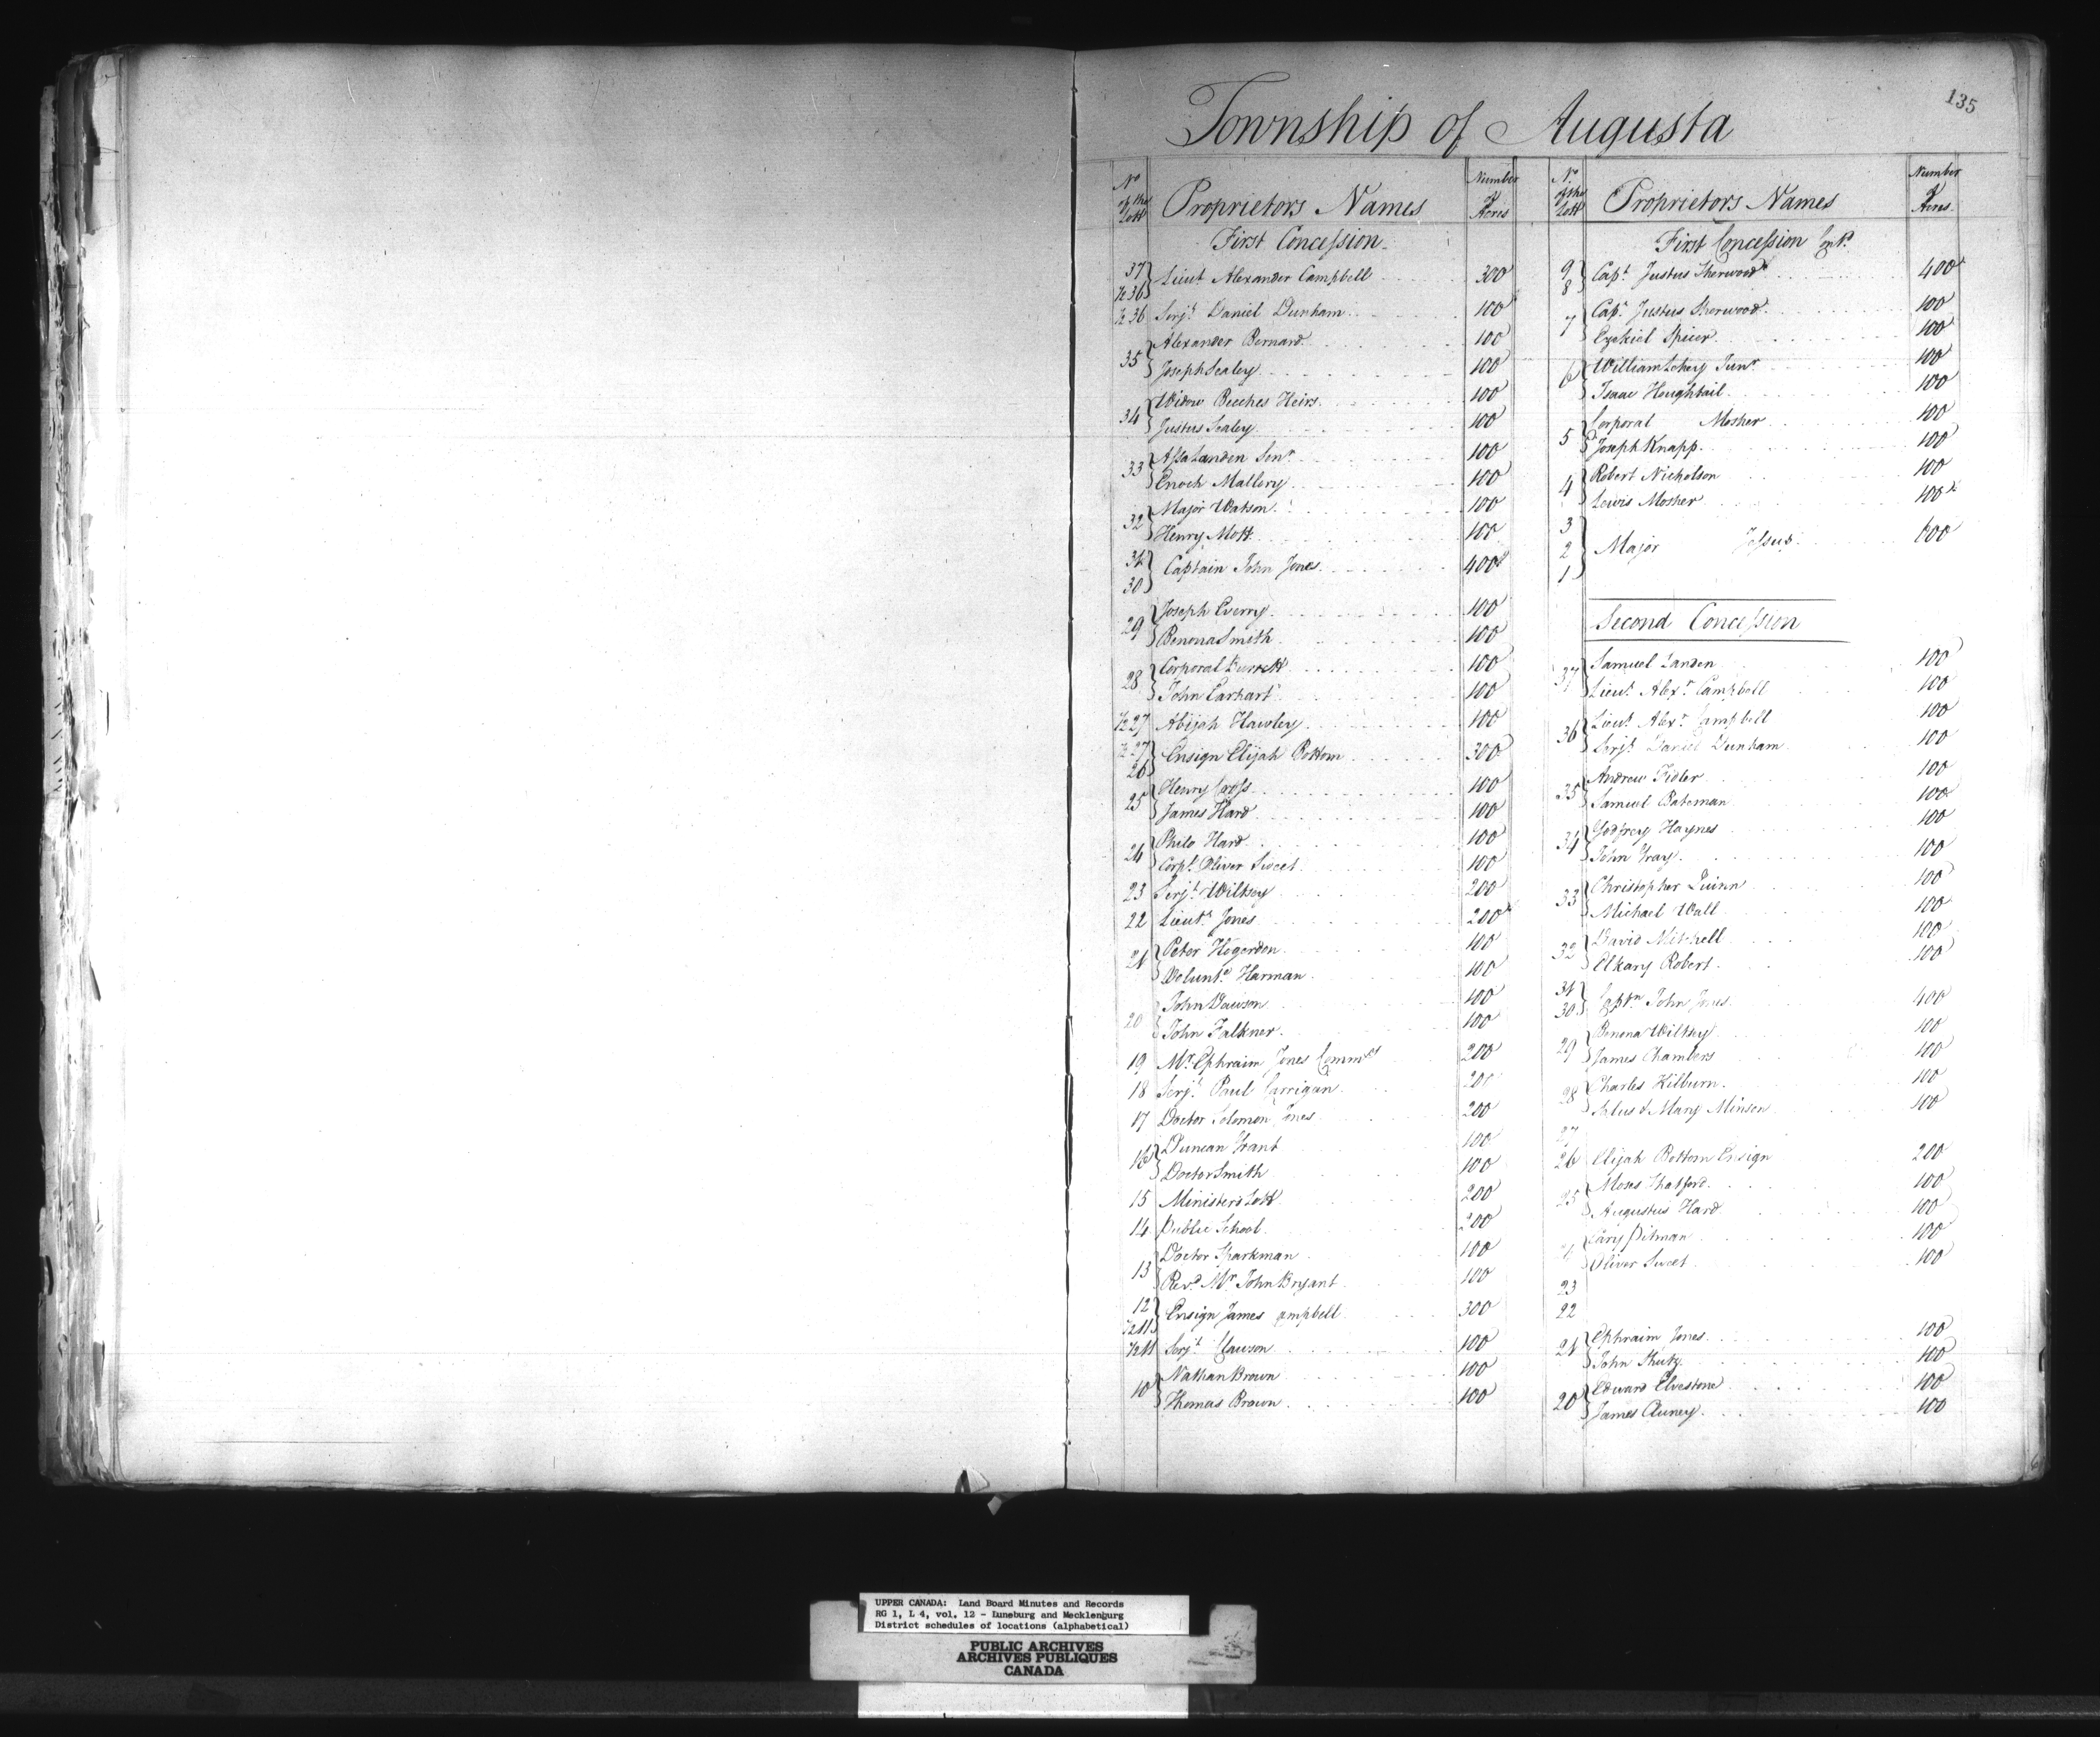 135
Township of Augusta
No of the Lott Proprietors Names Number of Acres
First Concession
37 ½ 36 Lieut Alexander Campbell 300
½ 36 Serjt. Daniel Dunham 100
35 Alexander Bernard 100
Joseph Sealey 100
34 Widow Beeches Heirs 100
Justus Sealey 100
33 Assa Landen Senr. 100
Enoch Mallery 100
32 Major Watson 100
Henry Mott 100
31 30 Captain John Jones 400
29 Joseph Everry 100
Benona Smith 100
28 Corporal Burrett 100
John Earhart 100
½ 27 Abijah Hawley 100
½ 27 26 Ensign Elijah Bottom 300
25 Henry Cross 100
James Hard 100
24 Philo Hard 100
Corpl. Oliver Sweet 100
23 Serjt. Wiltsey 200
22 Lieut. Jones 200
21 Peter Hogerdon 100
Volunt. Harman 100
20 John Dawson 100
John Falkner 100
19 Mr. Ephraim Jones Commy 200
18 Serjt. Paul Carrigan 200
17 Doctor Solomon Jones 200
16 Duncan Grant 100
Doctor Smith 100
15 Ministers Lott 200
14 Public School 200
13 Doctor Sparkman 100
Revd. Mr. John Bryant 100
12 ½ 11 Ensign James ampbell 300
½ 11 Serjt. Clawson 100
10 Nathan Brown 100
Thomas Brown 100
No. of the Lott Proprietors Names Number of Acres
First Concession Cont.
9 8 Capt. Justus Sherwood 400
7 Capt. Justus Sherwood 100
Ezekiel Spicer 100
6 William Lehey Junr. 100
Isaac Houghtail 100
5 Corporal Mosher 100
Joseph Knapp 100
4 Robert Nicholson 100
Lewis Mosher 100
3 2 1 Major Jessup 600
Second Concession
37 Samuel Landen 100
Lieut. Alexr. Campbell 100
36 Lieut. Alexr. Campbell 100
Serjt. Daniel Dunham 100
35 Andrew Fidler 100
Samuel Bateman 100
34 Godfrey Haynes 100
John Gray 100
33 Christopher Quinn 100
Michael Wall 100
32 David Mitchell 100
Elkany Robert 100
31 30 Captn John Jones 400
29 Benona Wiltsey 100
James Chambers 100
28 Charles Kilburn 100
& Mary Minson 100
27
26 Elijah Bottom Ensign 200
25 Moses Shafford 100
Augustus Hard 100
Cary Pitman 100
Oliver Sweet 100
23
22
21 Ephraim Jones 100
John Shutz 100
20 Edward Elvestone 100
James Cluney 100
UPPER CANADA: Land Board Minutes and Records
RG 1, L 4, vol. 12 - Luneburg and Mecklenburg
District schedules of locations (alphabetical)
PUBLIC ARCHIVES
ARCHIVES PUBLIQUES
CANADA